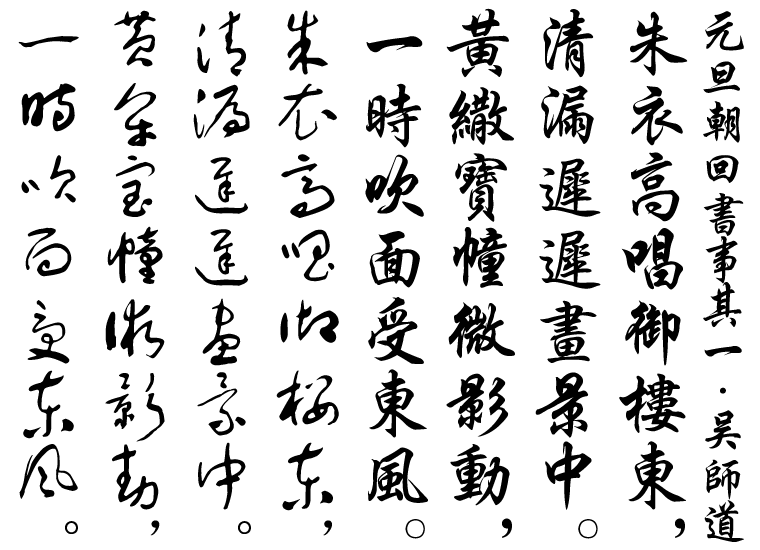 元旦朝回書事其一·吳師道
朱衣高唱御樓東，
清漏遲遲畫景中。
黃繖寶幢微影動，
一時吹面受東風。
朱衣高唱御樓東，
清漏遲遲畫景中。
黃傘寶幢微影動，
一時吹面受東風。